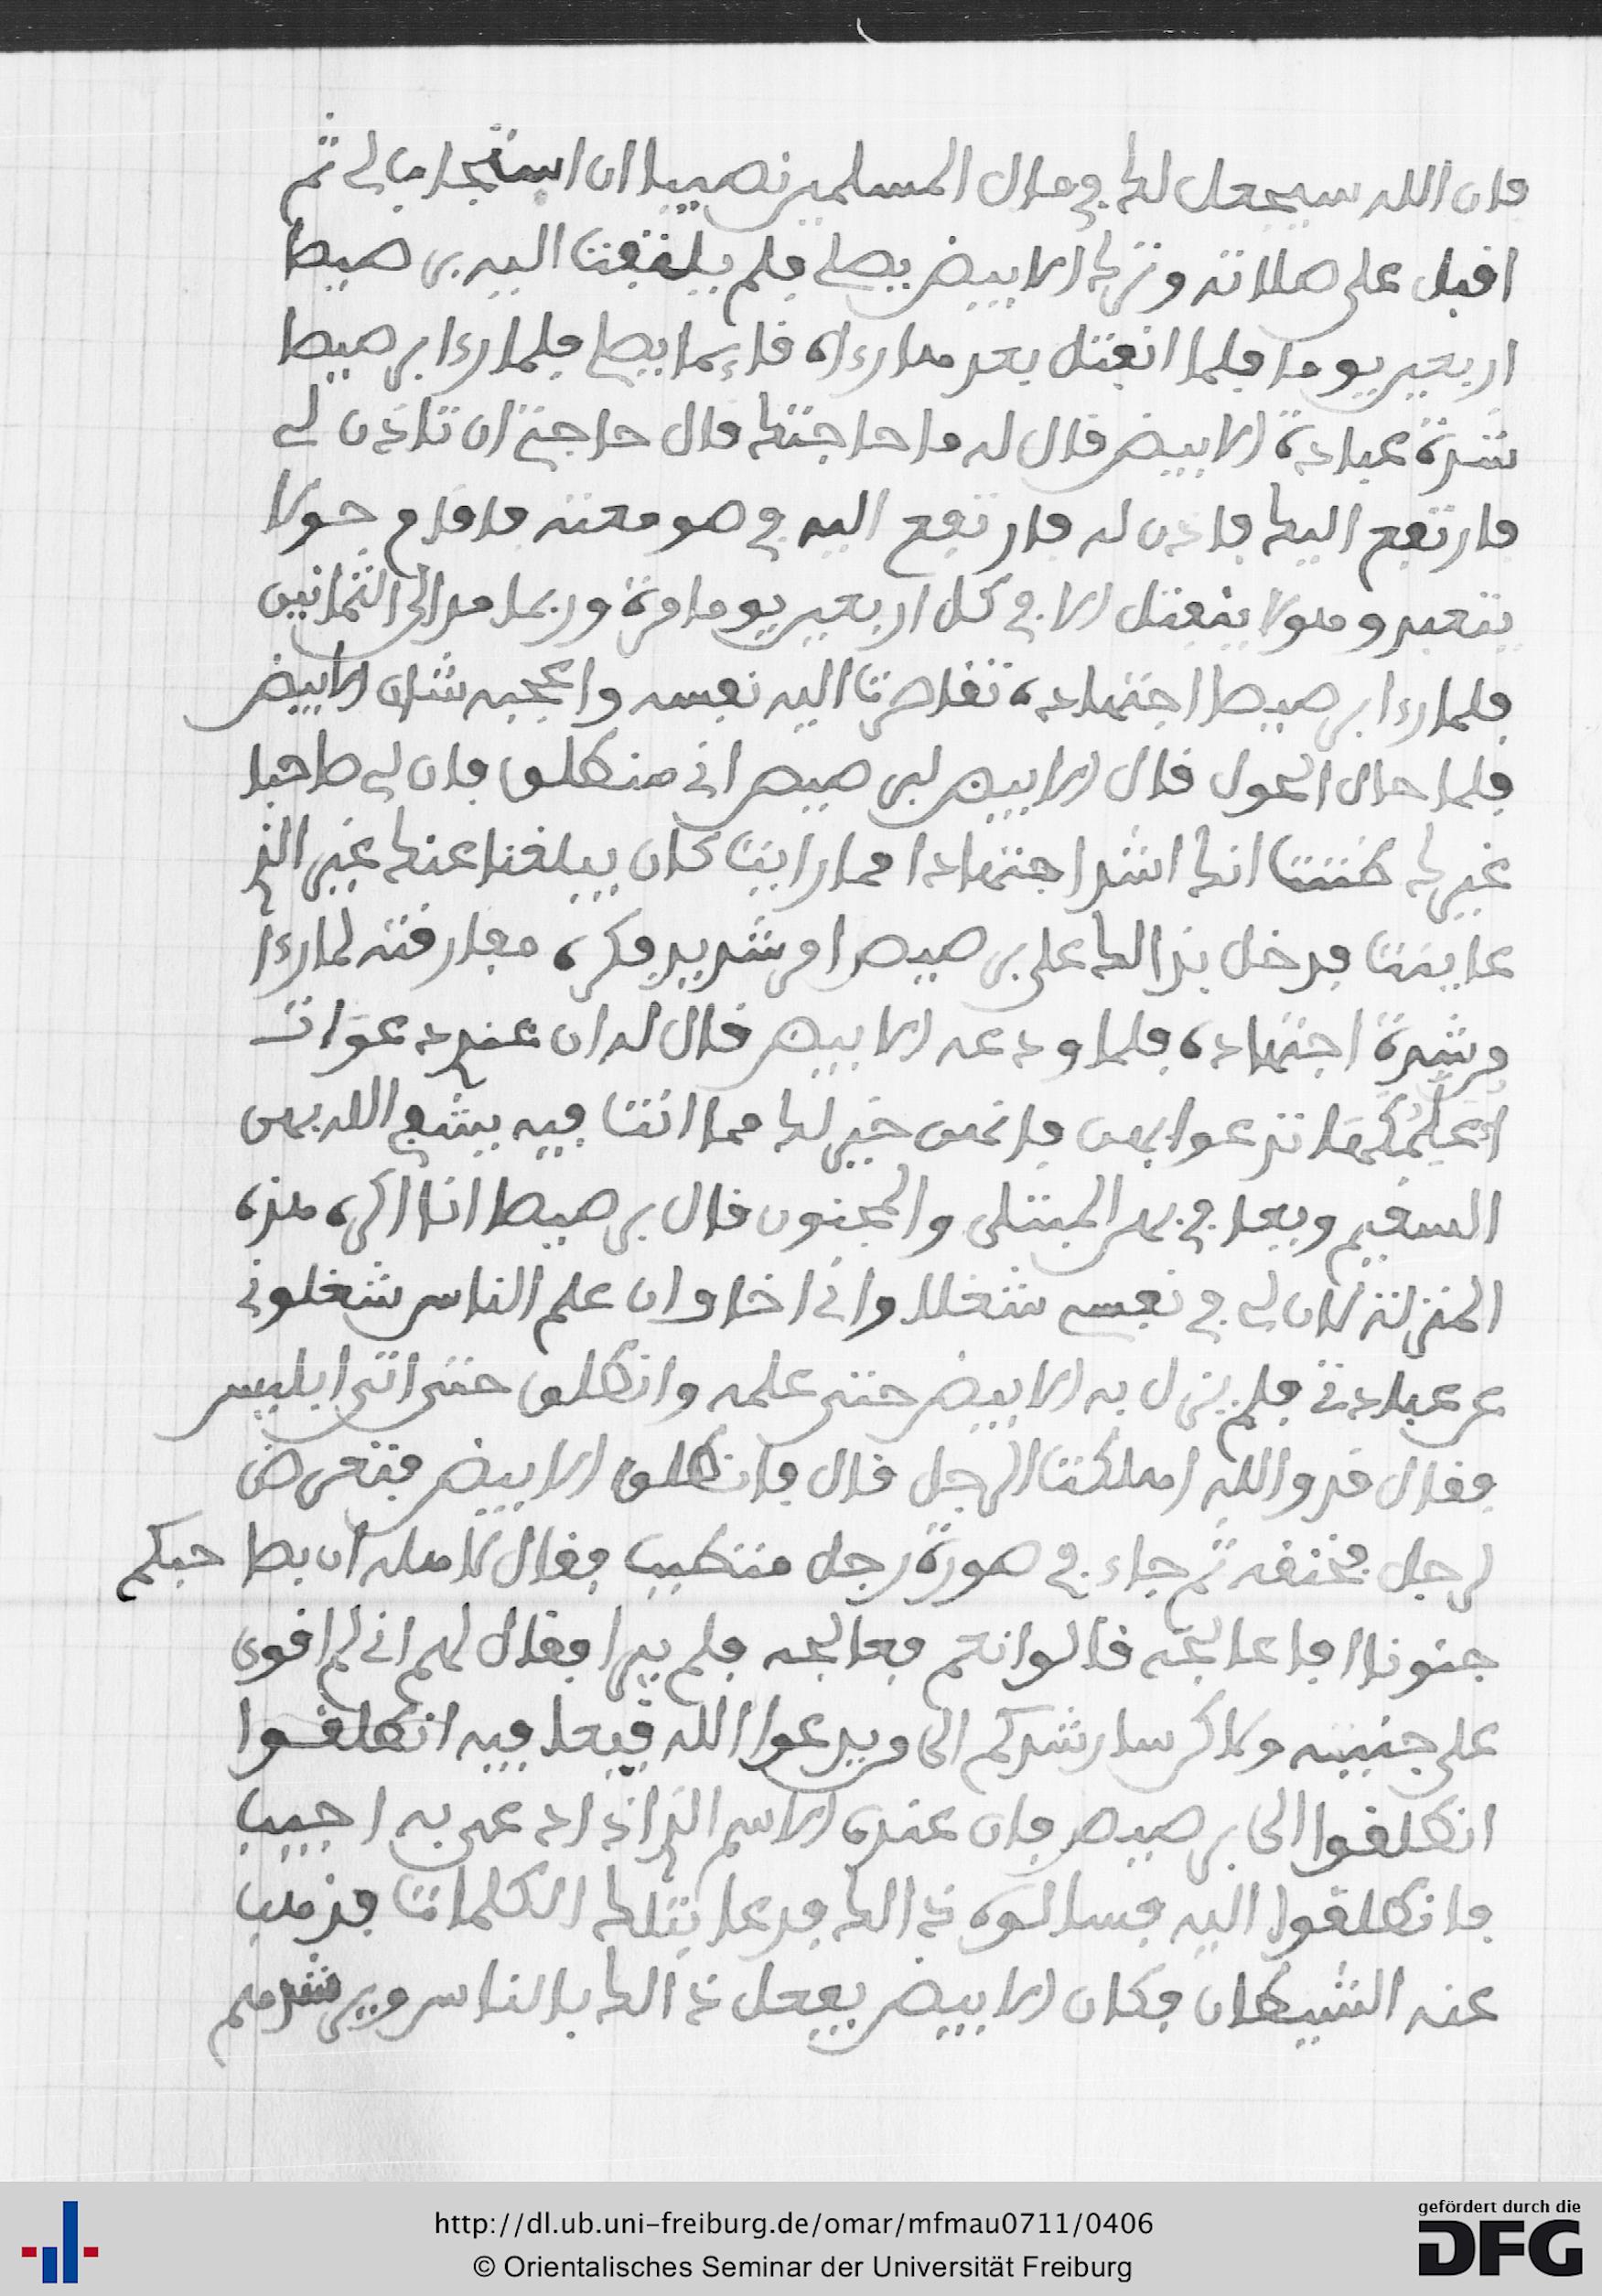 فان الله سيجعل لك في مال المسلمين نصيبا ان استجاب لي ثم
اقبل على صلاته وترك الابيض يصلي فلم يلتفت اليه برصيصا
اربعين يوما فلما انفتل بعد ما رءاه قائما يصلي فلما رءا برصيصا
شدة عبادة الابيض قال له ما حاجتك قال حاجتي ان تاذن لي
فارتفع اليك فاذن له فارتفع اليه في صومعته فاقام حولا
يتعبد وهو لا ينفتل الا في كل اربعين يوما مرة وربما مد الى الثمانين
فلما رءا برصيصا اجتهاده تقاصرت اليه نفسه واعجبه شان الابيض
فلما حال الحول قال الابيض لبرصيصا اني منطلق فان لي صاحبا
غيرك ظننت انك اشد اجتهادا مما رايت كان يبلغنا عنك غير الذي
عاينت فدخل بذالك على برصيصا امر شديد فكره مفارقته لما رءا
من شدة اجتهاده فلما ودعه الابيض قال له ان عندي دعوات
اعلمكها تدعوا بهن فانهن خير لك مما انت فيه يشفي الله بهن
السقيم ويعافي بهن المبتلى والمجنون قال برصيصا انا اكره هذه
المنزلة لان لي في نفسي شغلا واني اخاف ان علم الناس شغلوني
عن عبادتي فلم يزل به الابيض حتى علمه وانطلق حتى اتى ابليس
فقال قد والله اهلكت الرجل قال فانطلق الابيض فتعرض
لرجل فخنقه ثم جاء في صورة رجل متطبب فقال لاهله ان بصاحبكم
جنونا افاعالجه قالوا نعم فعالجه فلم يبرا فقال لهم اني لم اقوى
على جنيته ولاكن سارشدكم الى من يدعوا الله فيعافيه انطلقوا
انطلقوا الى برصيصا فان عنده الاسم الذي اذا دعي به اجيب
فانطلقوا اليه فسالوه ذالك فدعا بتلك الكلمات فذهب
عنه الشيطان فكان الابيض يفعل ذالك بالناس ويرشدهم
http://dl.ub.uni-freiburg.de/omar/mfmau0711/0406
© Orientalisches Seminar der Universität Freiburg
gefördert durch die
DFG